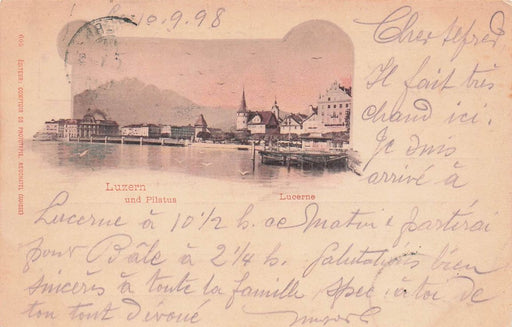 10.9.98
Cher Alfred
Il fait très
chaud ici.
Je suis
arrivé à
Lucerne à 10 1/2 h. ce Matin & partirai
pour Bâle à 2 1/4 h. Salutations bien
sincères à toute la famille spec. à toi de
ton tout dévoué
Luzern
und Pilatus
Lucerne